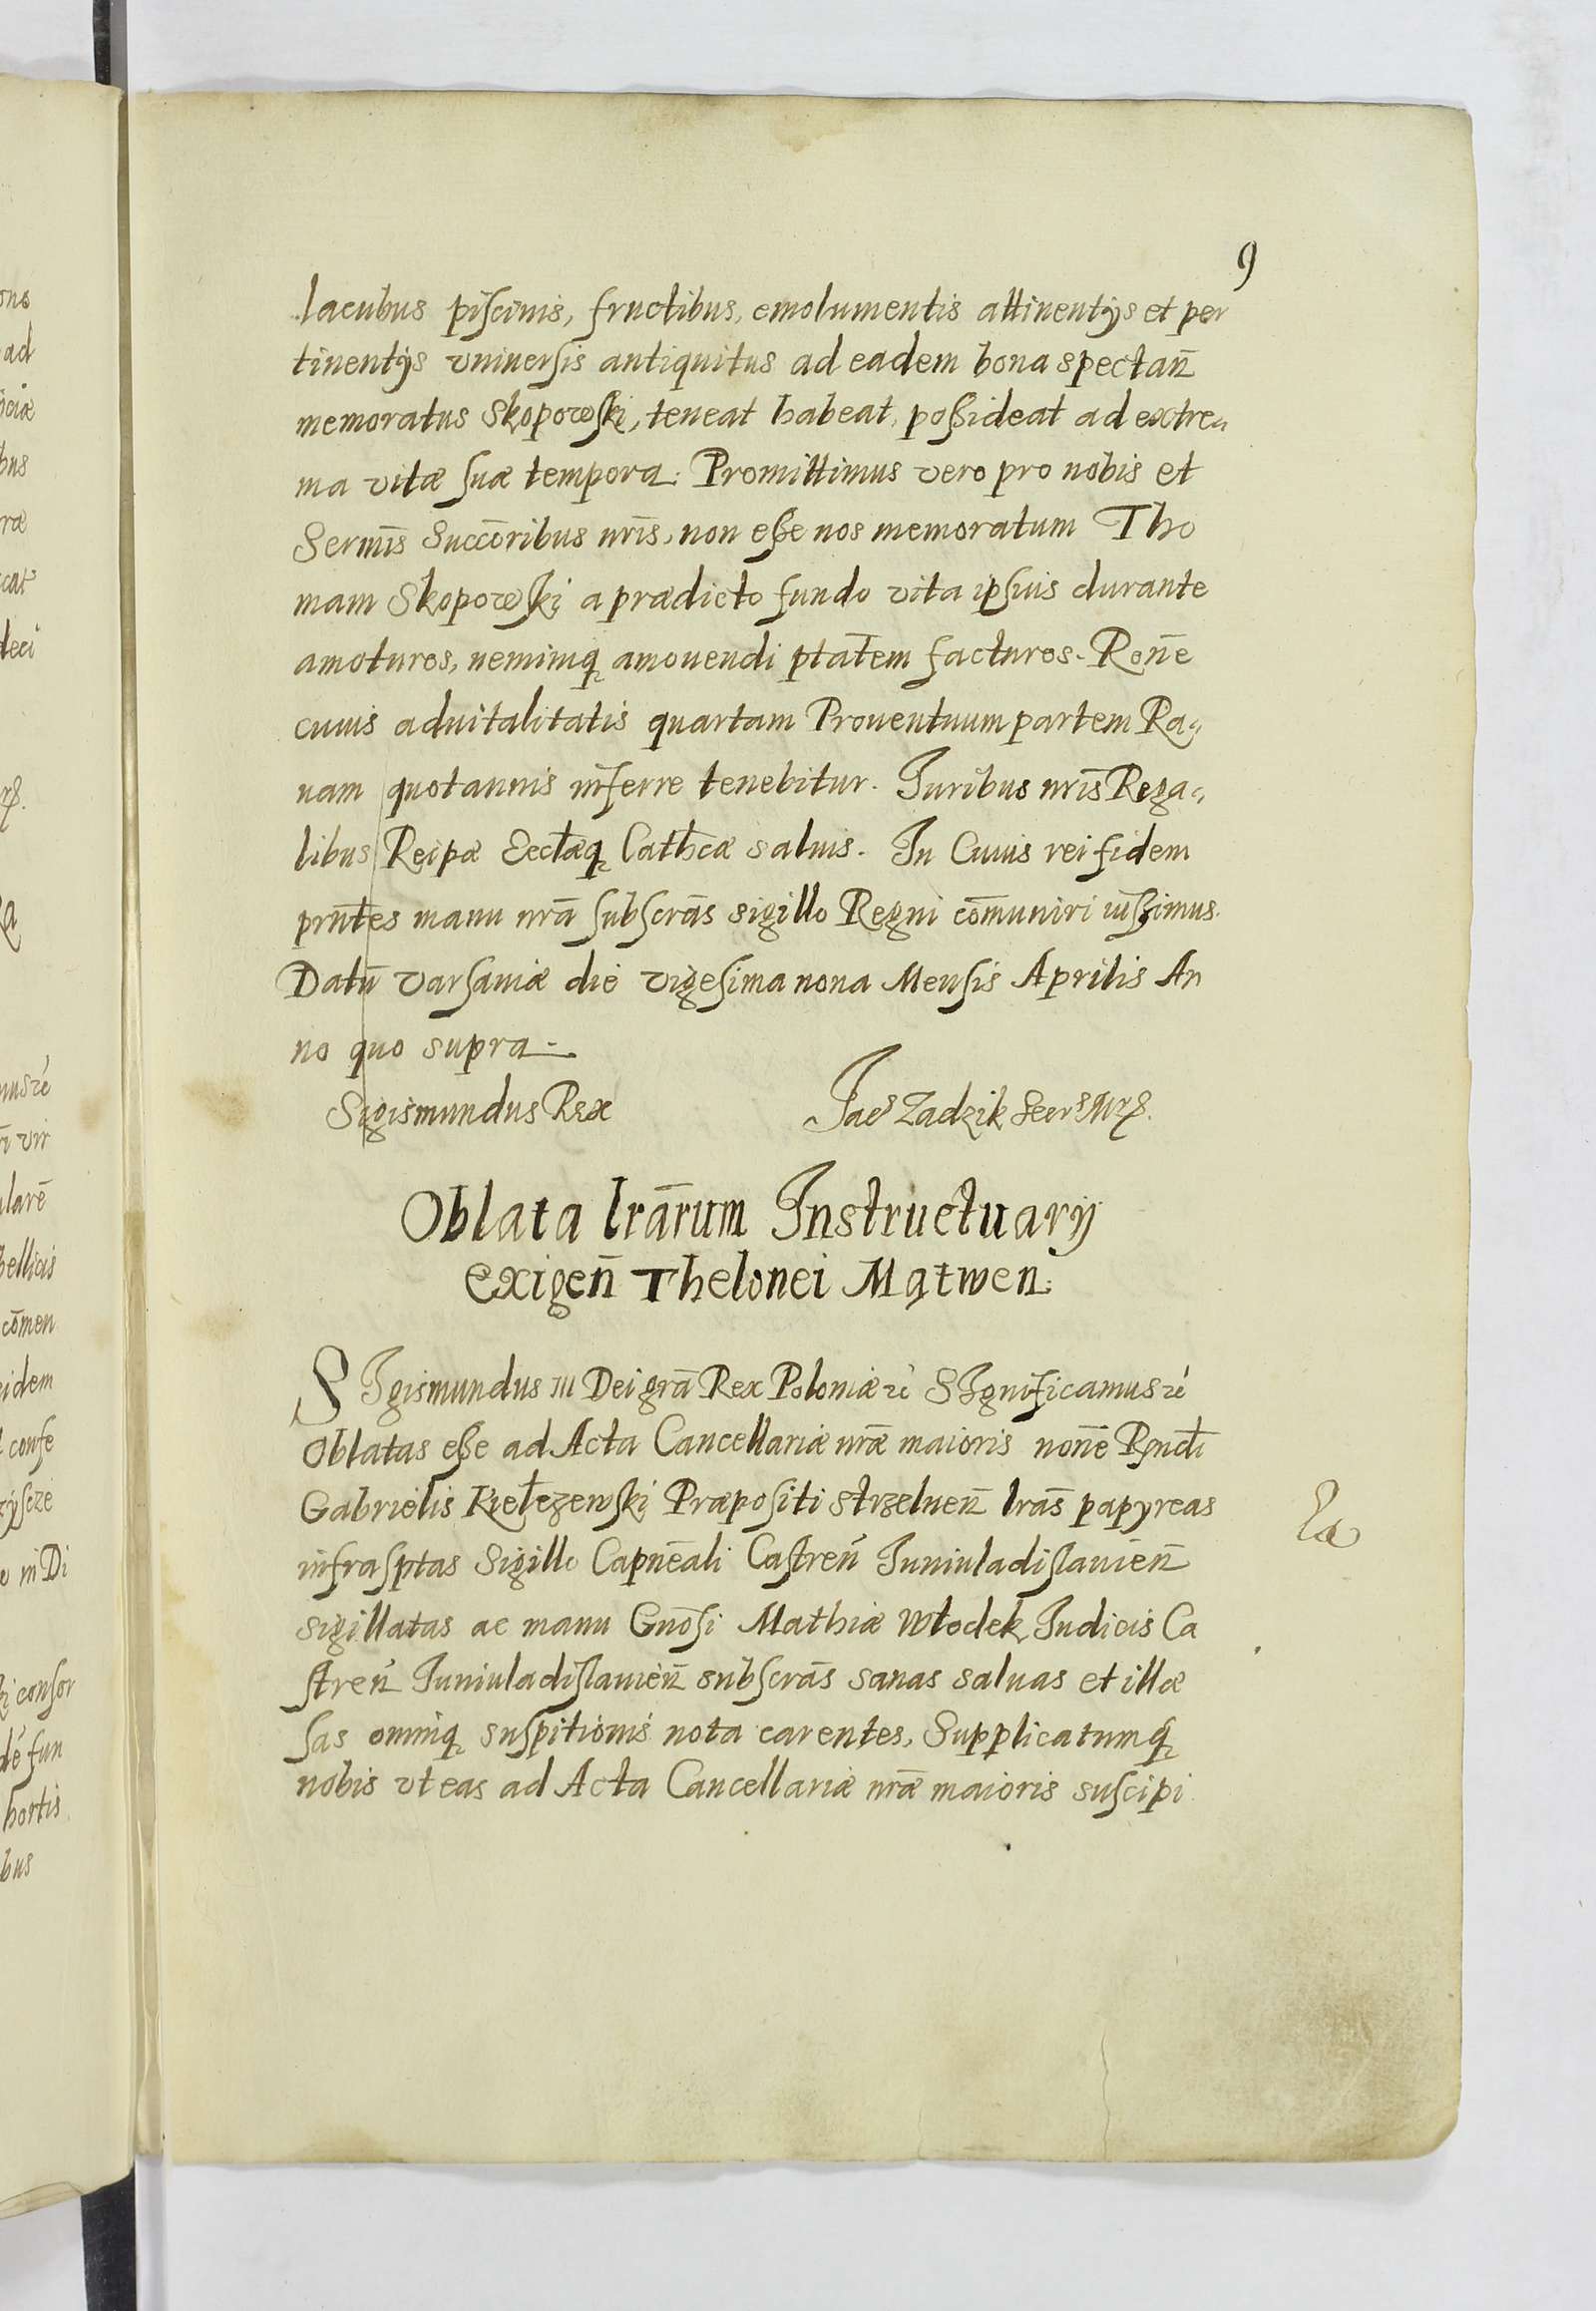 9
lacubus piscinis, fructibus, emolumentis attinentÿs et per
tinentÿs vniuersis antiquitus ad eadem bona spectan̄
memoratus Skopowski, teneat habeat, possideat ad extre„
ma vitæ suæ tempora. Promittimus vero pro nobis et
Sermīs Succōribus nrīs, non esse nos memoratum Tho
mam Skopowski a prædicto fundo vita ipsius durante
amoturos, neminiq̨ amouendi ptātem facturos. Ron̄e
cuius aduitalitatis quartam Prouentuum partem Ra„
uam quotannis inferre tenebitur. Juribus nrīs Rega„
libus Reipæ Eccłæq̨ Cathcæ saluis. In Cuius rei fidem
prn̄tes manu nrā subscrās sigillo Regni cōmuniri iussimus.
Datū Varsauiæ die vigesima nona Mensis Aprilis An
no quo supra.
Sigismundus Rex
Jac Zadzik Secr
Oblata lrārum Instructuarÿ
exigen̄ Thelonei Mątwen.
SIgismundus III Dei grā Rex Poloniæ &c SIgnificamus &c
Oblatas esse ad Acta Cancellariæ nrǣ maioris non̄e Rndi
Gabrielis Kiełczewski Præpositi Strzelnen̄ lrās papyreas
infrasptas Sigillo Capnēali Castren̄ Juniuladislauien̄
sigillatas ac manu Gnōsi Mathiæ Włodek Judicis Ca
stren̄ Juniuladislauien̄ subscrās sanas saluas et illæ
sas omniq̨ suspitionis nota carentes, Supplicatumq̨
nobis vt eas ad Acta Cancellariæ nrǣ maioris suscipi